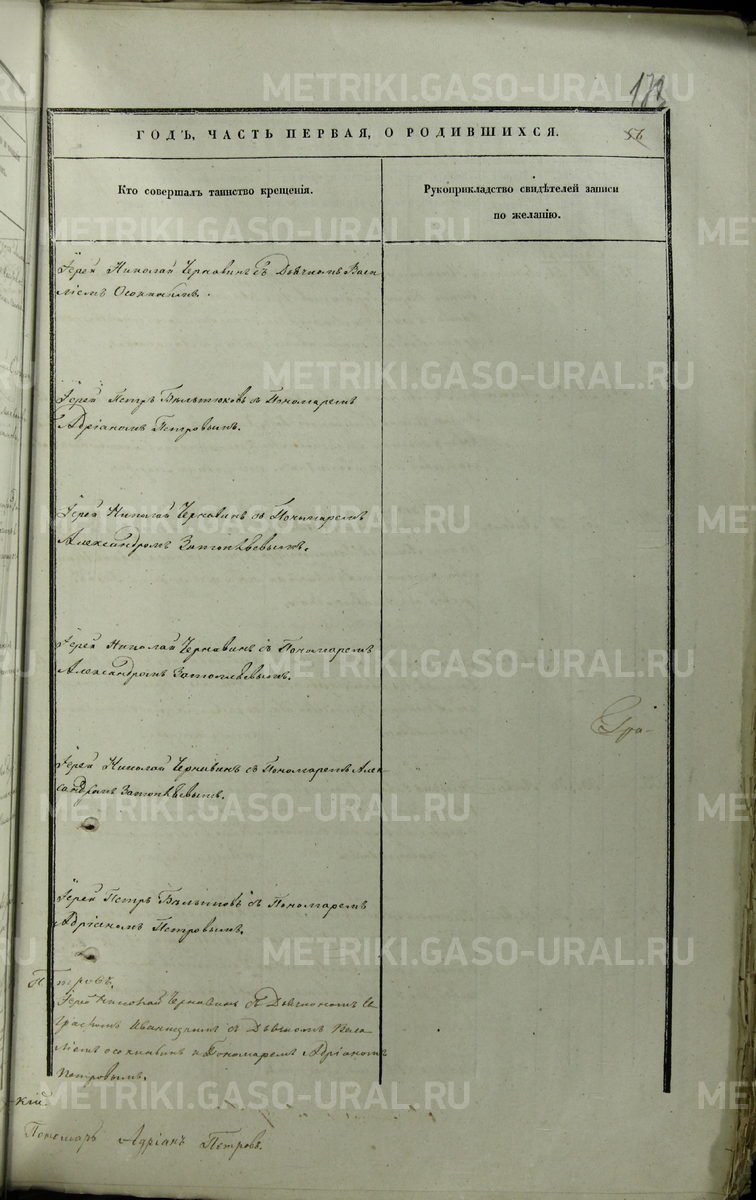 METRIKI.GASO-URAL.RU
173
ГОДЪ, ЧАСТЬ ПЕРВАЯ, О РОДИВШИХСЯ.
56
Кто совершалъ таинство крещенія.
Рукоприкладство свидѣтелей записи
по желанію.
Іерей Николай Чернавинъ съ Дьячкомъ Васи-
ліемъ Осокинымъ.
Іерей Петръ съ Пономаремъ
Адріаномъ Петровымъ.
Іерей Николай Чернавинъ съ Пономаремъ
Александромъ
Іерей Николай Чернавинъ съ Пономаремъ
Александромъ
Іерей Николай Чернавинъ съ Пономаремъ Алек-
сандромъ
Іерей Петръ съ Пономаремъ
Адріаномъ Петровымъ.
Петровъ.
Іерей Николай Чернавинъ съ
съ Дьячкомъ Васи-
ліемъ Осокинымъ и Пономаремъ Адріаномъ
Петровымъ.
Гра-
-кій.
Пономарь Адріанъ Петровъ.